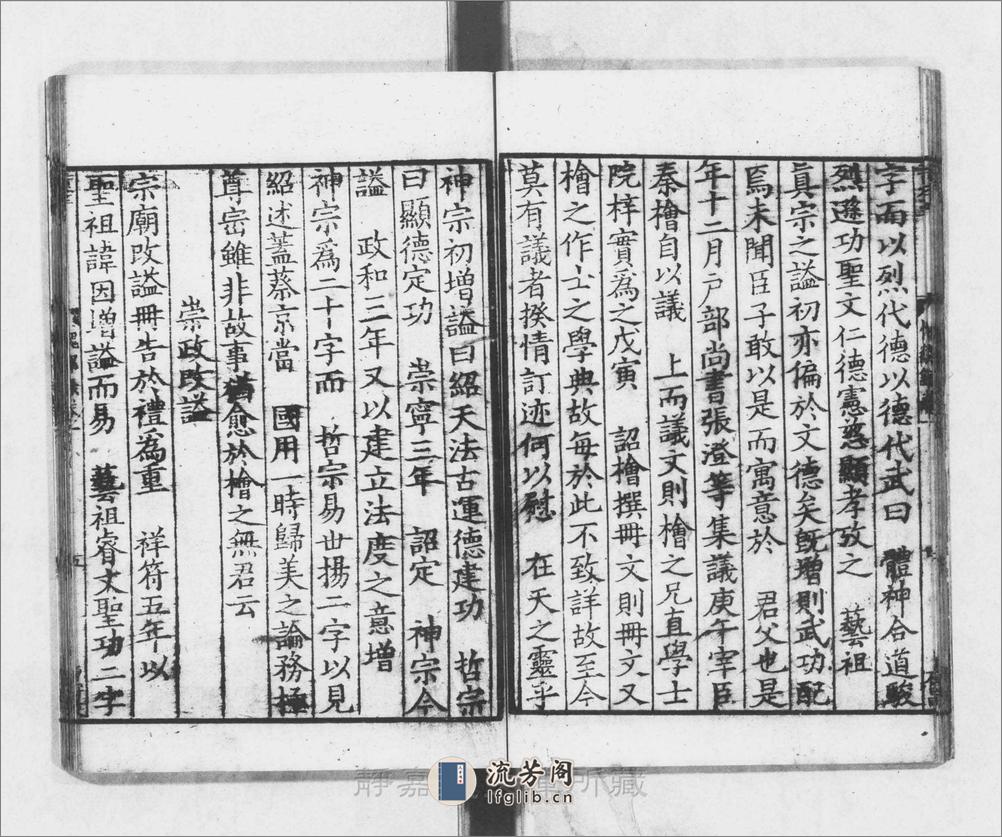 字而以烈代德以德代武曰　體神合道駿
烈遜功聖文仁德憲慈顯孝攷之　藝祖
眞宗之謚初亦偏於文德矣既增則武功配
焉未聞臣子敢以是而寓意於　君父也是
年十二月戸部尚書張澄等集議庚午宰臣
秦檜自以議　上而議文則檜之兄直學士
院梓實爲之戊寅　詔檜撰冊文則冊文又
檜之作士之學典故每於此不致詳故至今
莫有議者揆情訂迹何以慰　在天之靈乎
神宗初增謚曰紹天法古運德建功　哲宗
曰顯德定功　崇寧三年　詔定　神宗今
謚　政和三年又以建立法度之意增
神宗爲二十字而　哲宗易世揚二字以見
紹述蓋蔡京當　國用一時歸美之論務極
尊崇雖非故事猶愈於檜之無君云
崇政改謚
宗廟改謚冊告於禮為重　祥符五年以
聖祖諱因増謚而易　藝祖睿文聖功二字
流芳阁
lfglib.cn
靜嘉
所藏